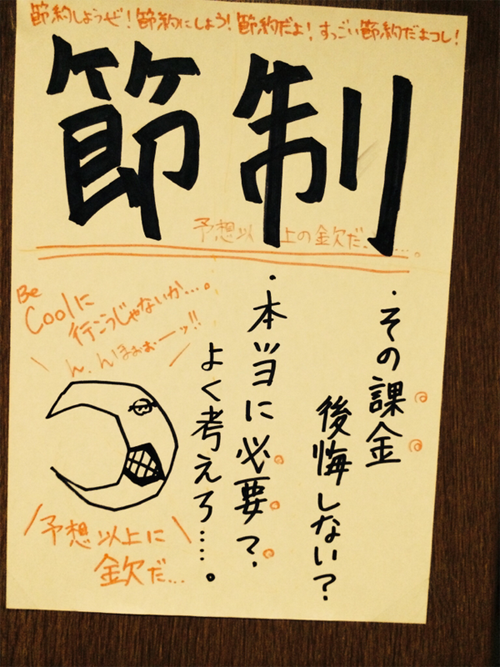 節約しようぜ!節約にしよう!節約だよ!すっごい節約だよコレ!
節制
予想以上の金欠だ......。
・その課金
後悔しない?
・本当に必要?
よく考えろ……。
Be
Coolに
行こうじゃないか…。
ん、んほぉぉーッ!!
予想以上に
金欠だ…